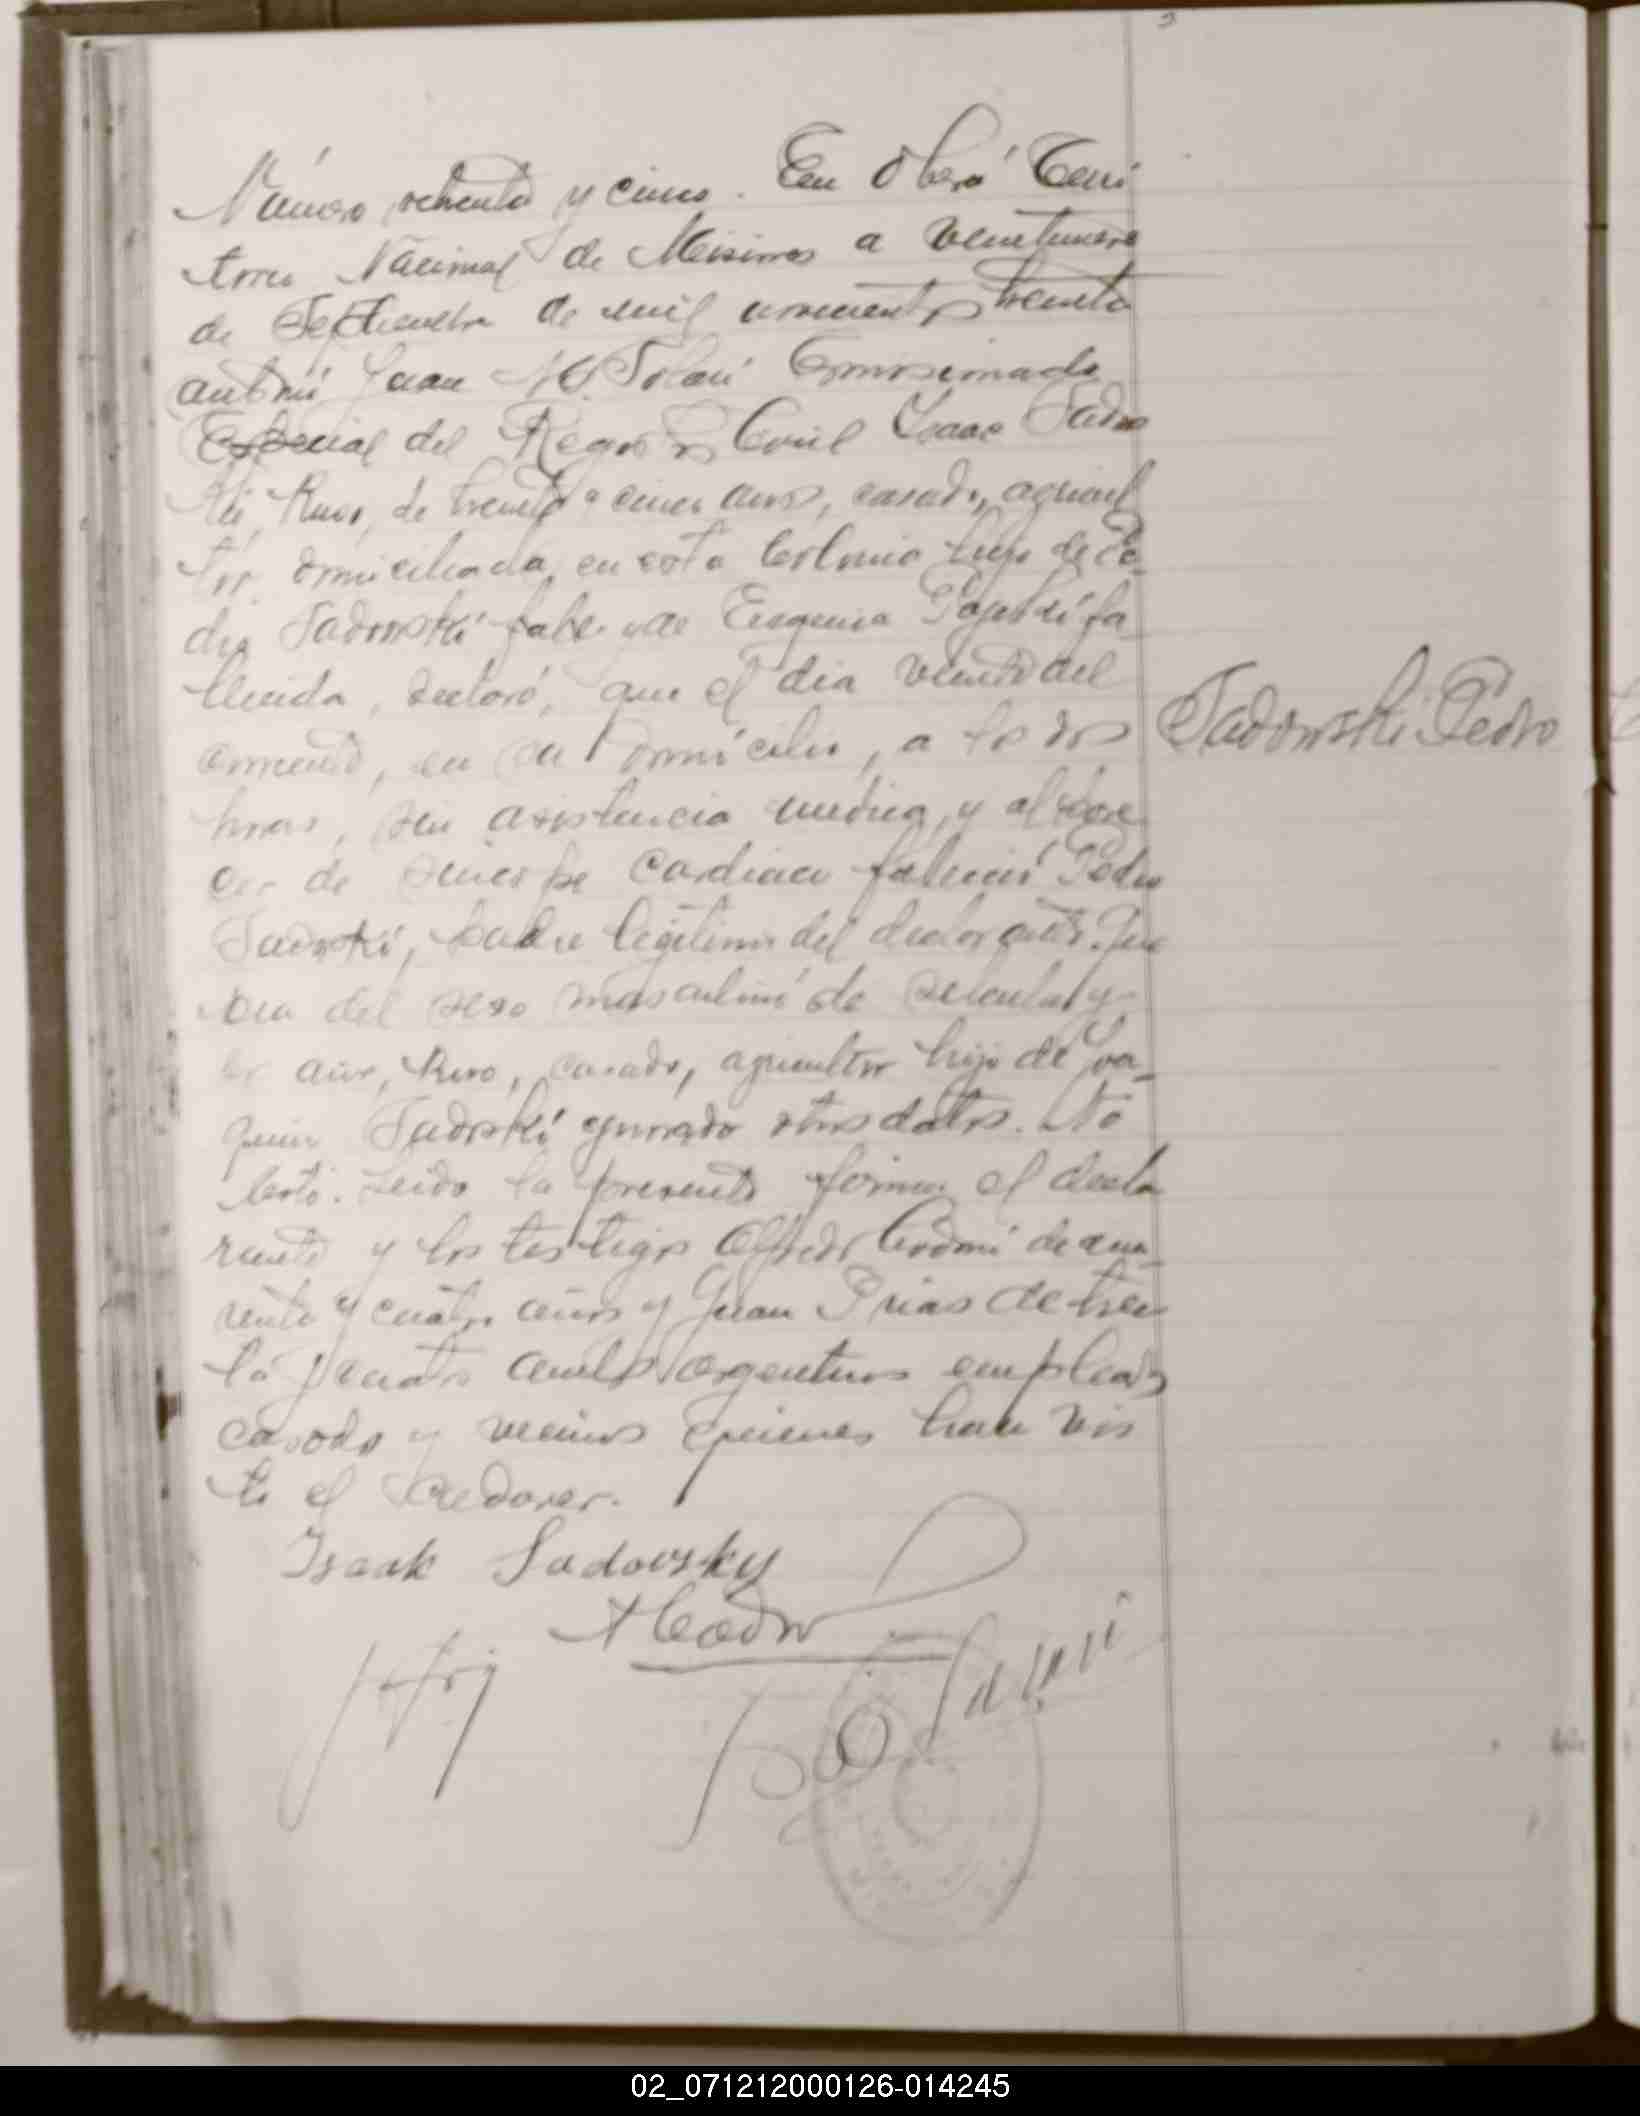 Número ochenta y cinco. En Oberá Terri
torio Nacional de Misiones a veintinueve
de Septiembre de mil novecientos treinta
ante mí Juan M. Solari Comisionado
Especial del Registro Civil Isaac Sadow
ski, Ruso, de treinta cinco años, casado, agricul
tor domiciliado, en esta Colonia hijo de Pe-
dro Sadowski falle. y de Eugenia fa
llecida, declaró, que el día veinte del
corriente, en su domicilio, a las dos
horas, sin asistencia medica, y al pare
cer de sincope cardiaco falleció Pedro
Sadoski, padre legitimo del declarante. Que
era del sexo masculino de setenta y
años, Ruso, casado, agricultor hijo de Joa-
quin Sadoski ignorado otros datos. No
testó. Leida la presente firman el decla
rante y los testigos Alfredo de cua-
renta y cuatro años y Juan de trein
ta y cuatro años argentinos empleados
casado y vecinos quienes han vis
to el cadaver.
Sadowski Pedro
Isaak Sadovsky
02_071212000126-014245